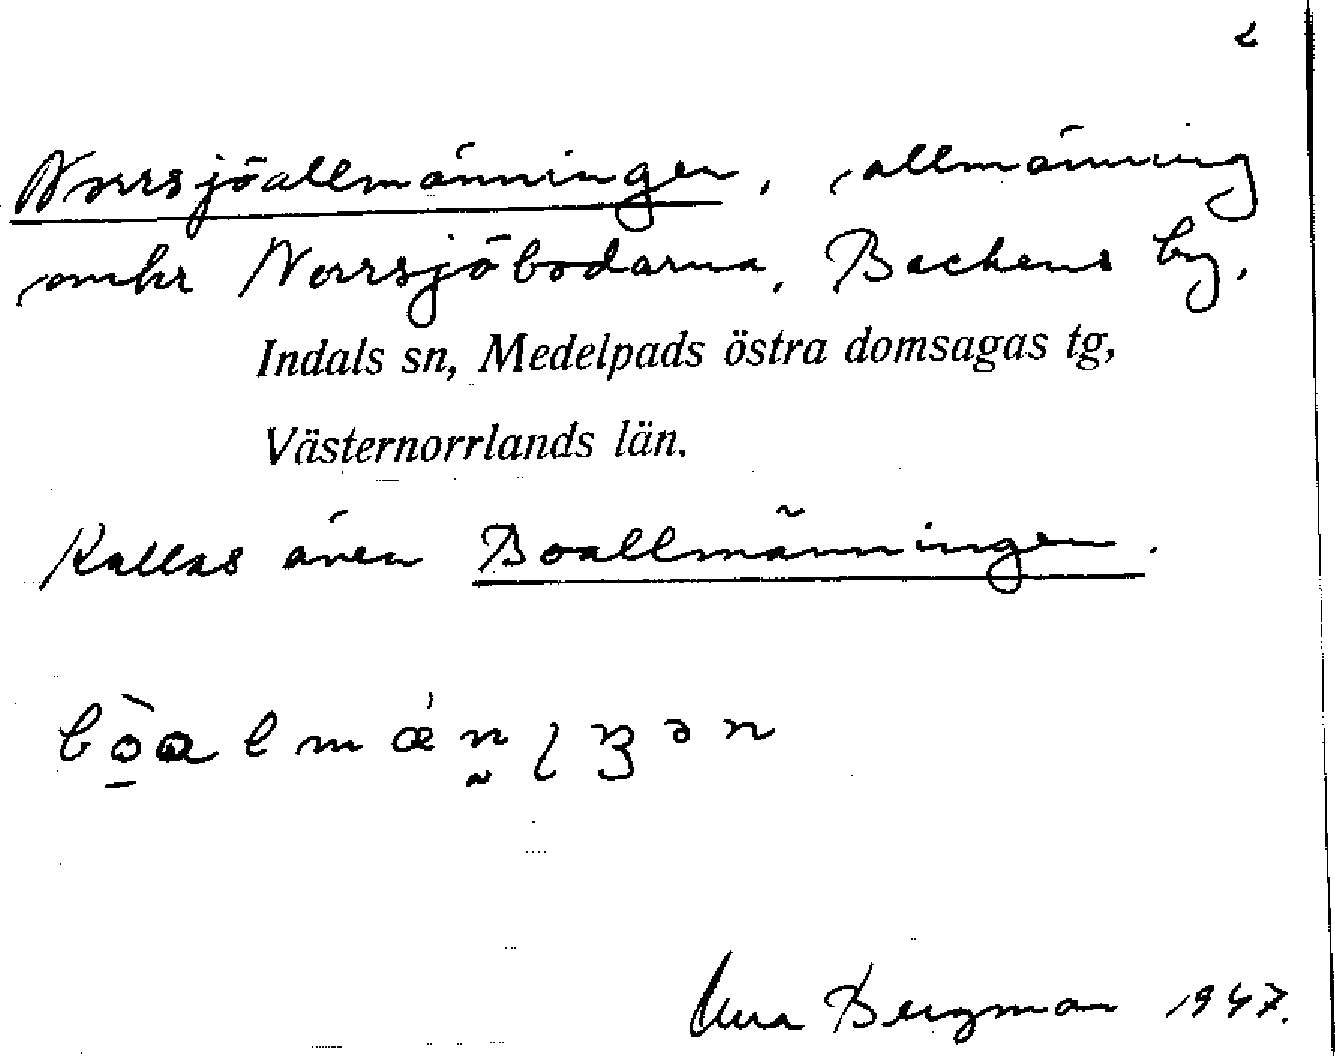 2
Norrsjöallmänningen, allmänning
omkr Norrsjöbodarna, Backens by.
Indals sn, Medelpads östra domsagas tg,
Västernorrlands län.
Kallas även Boallmänningen.
Bergman 1947.